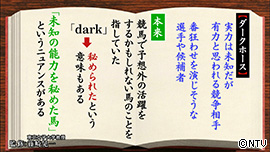 【ダークホース】
実力は未知だが
有力と思われる競争相手
番狂わせを演じそうな
選手や候補者
本来
競馬で予想外の活躍を
するかもしれない馬のことを
指していた
「dark」
秘められたという
意味もある
「未知の能力を秘めた馬」
というニュアンスがある
©NTV